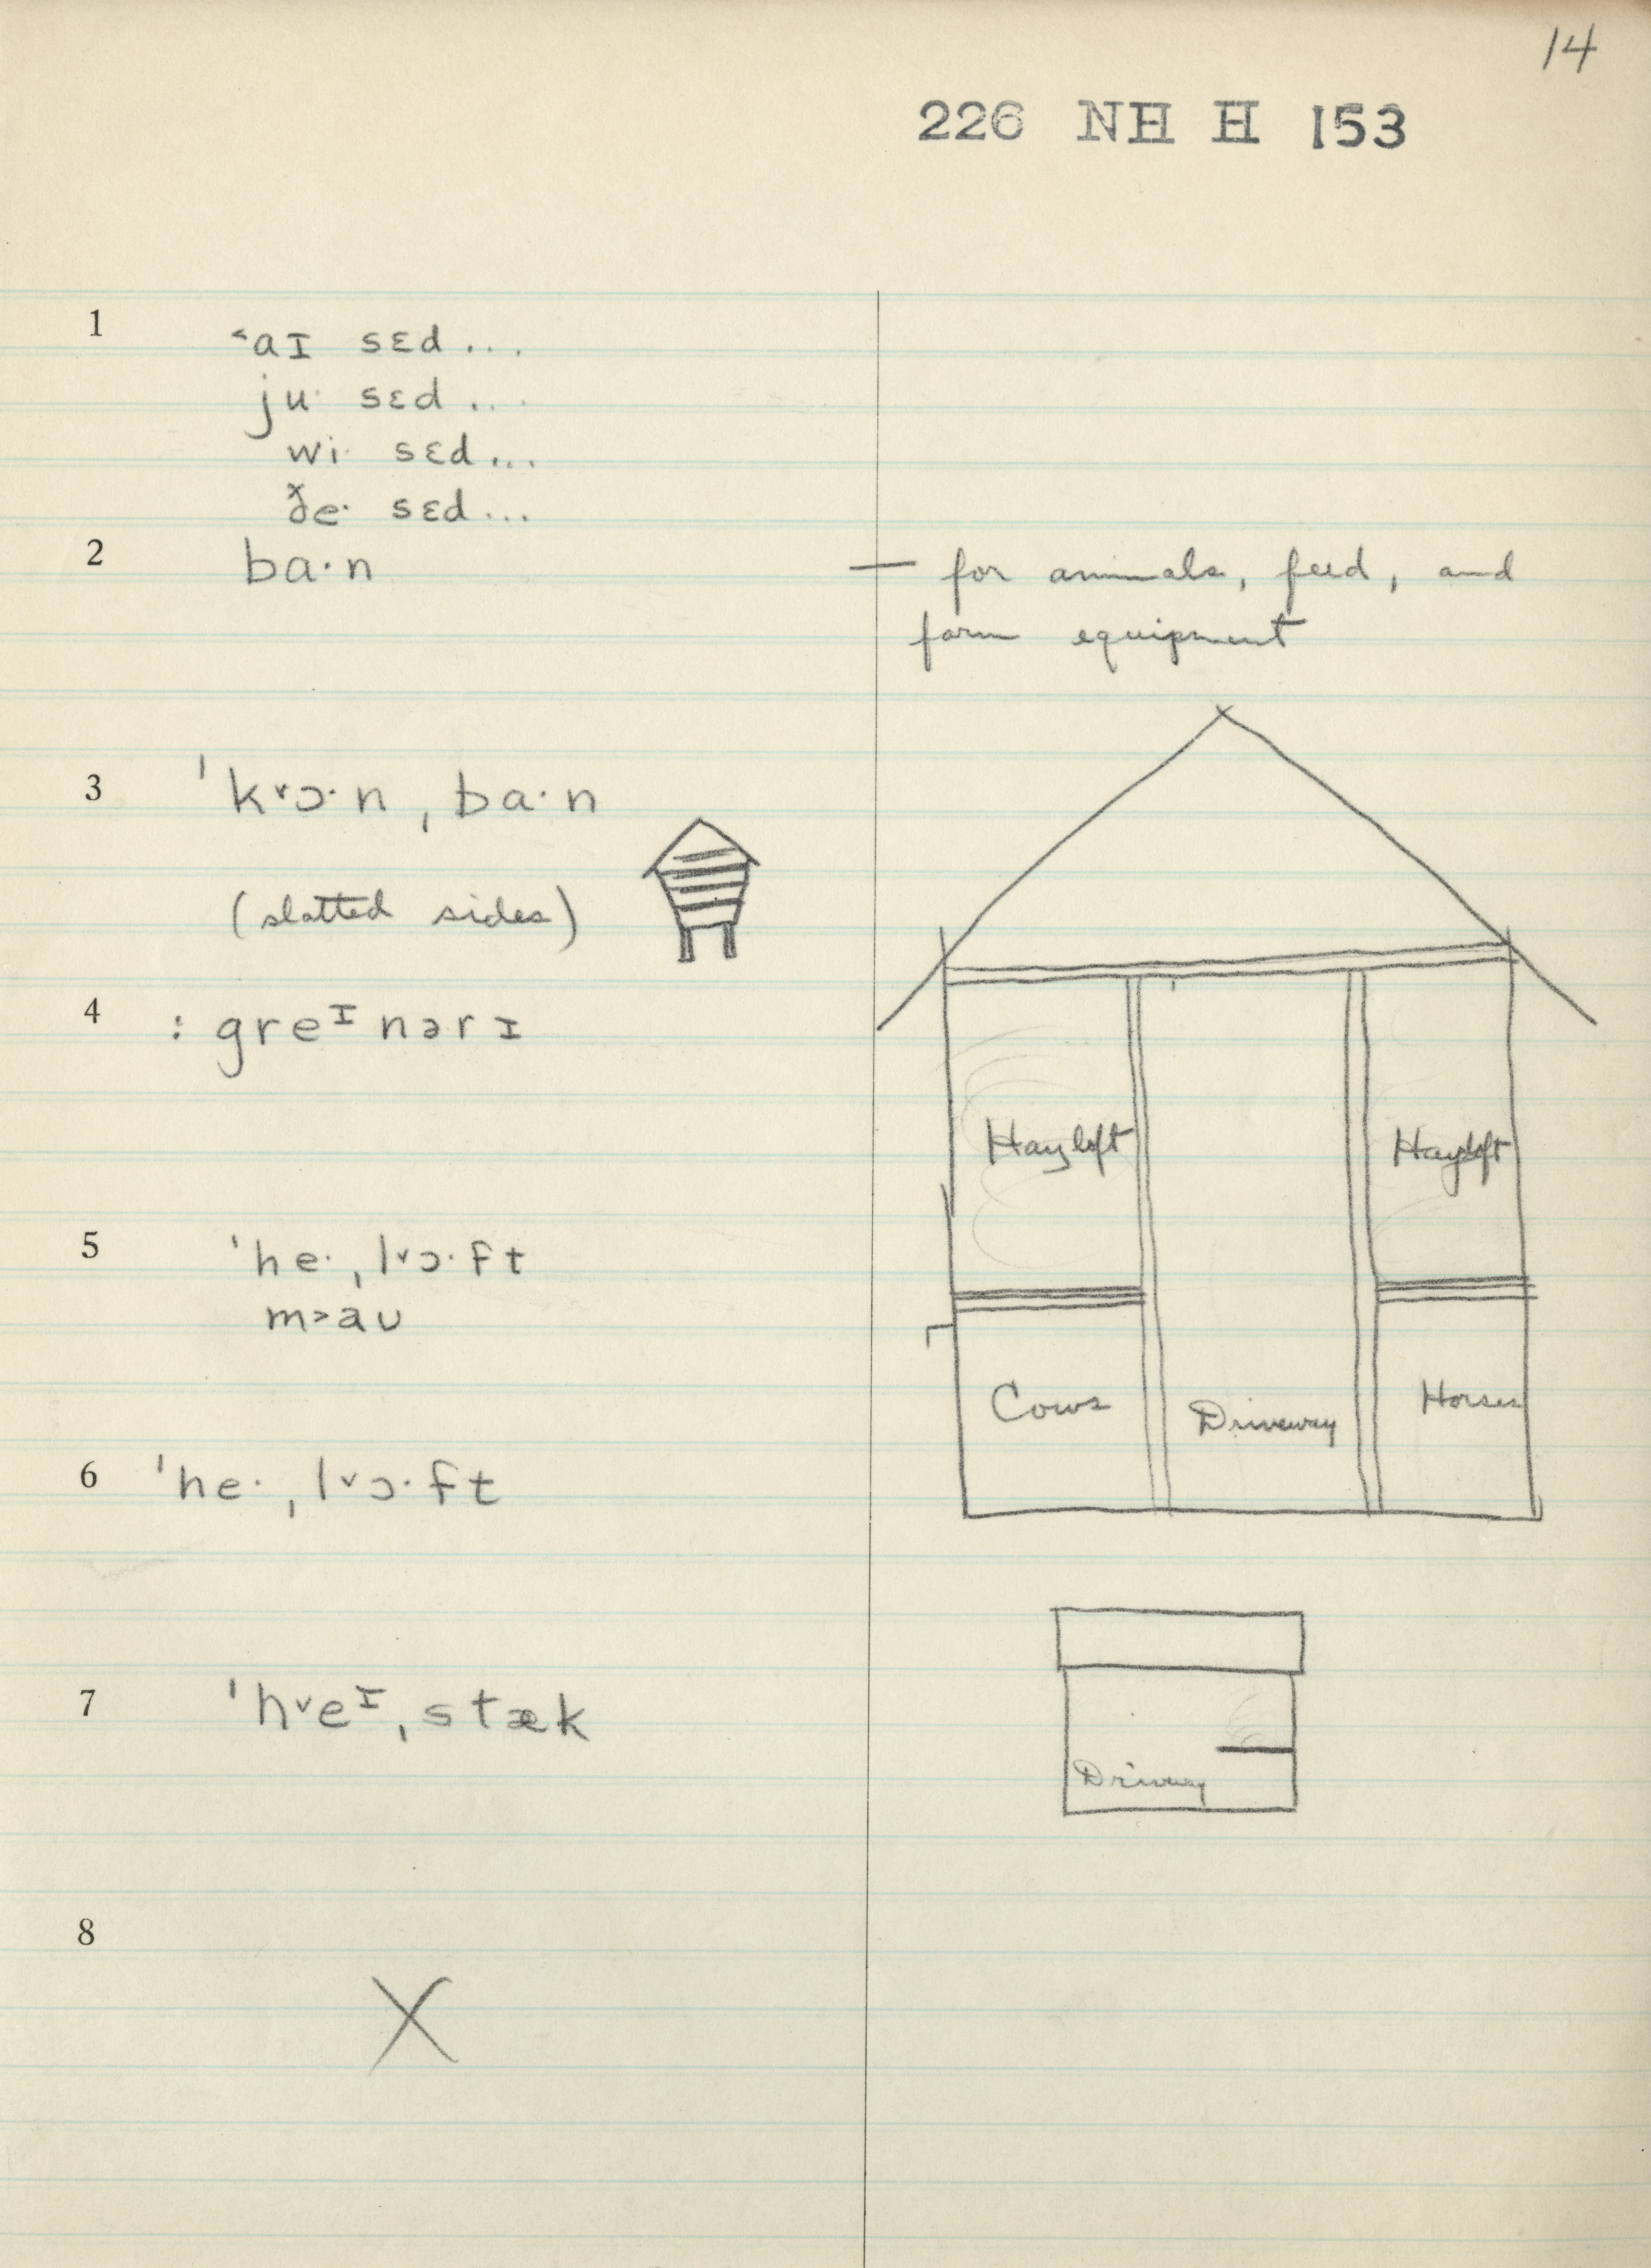 14
226 NH H 153
1 ˂aɪ sɛd...
ju· sɛd...
wi· sɛd...
ðe· sɛd...
2 ba·n
— for animals, feed, and
farm equipment
3 ˈk˅ɔ·nˌba·n
(slatted sides)
4 : greᶦnərɪ
Hayloft Hayloft
5 ˈhe·ˌl˅ɔ·ft
m˃aʊ
Cows Driveway Horses
6 ˈhe·ˌl˅ɔ·ft
7 ˈh˅eᶦˌstæk
Driveway
8 X